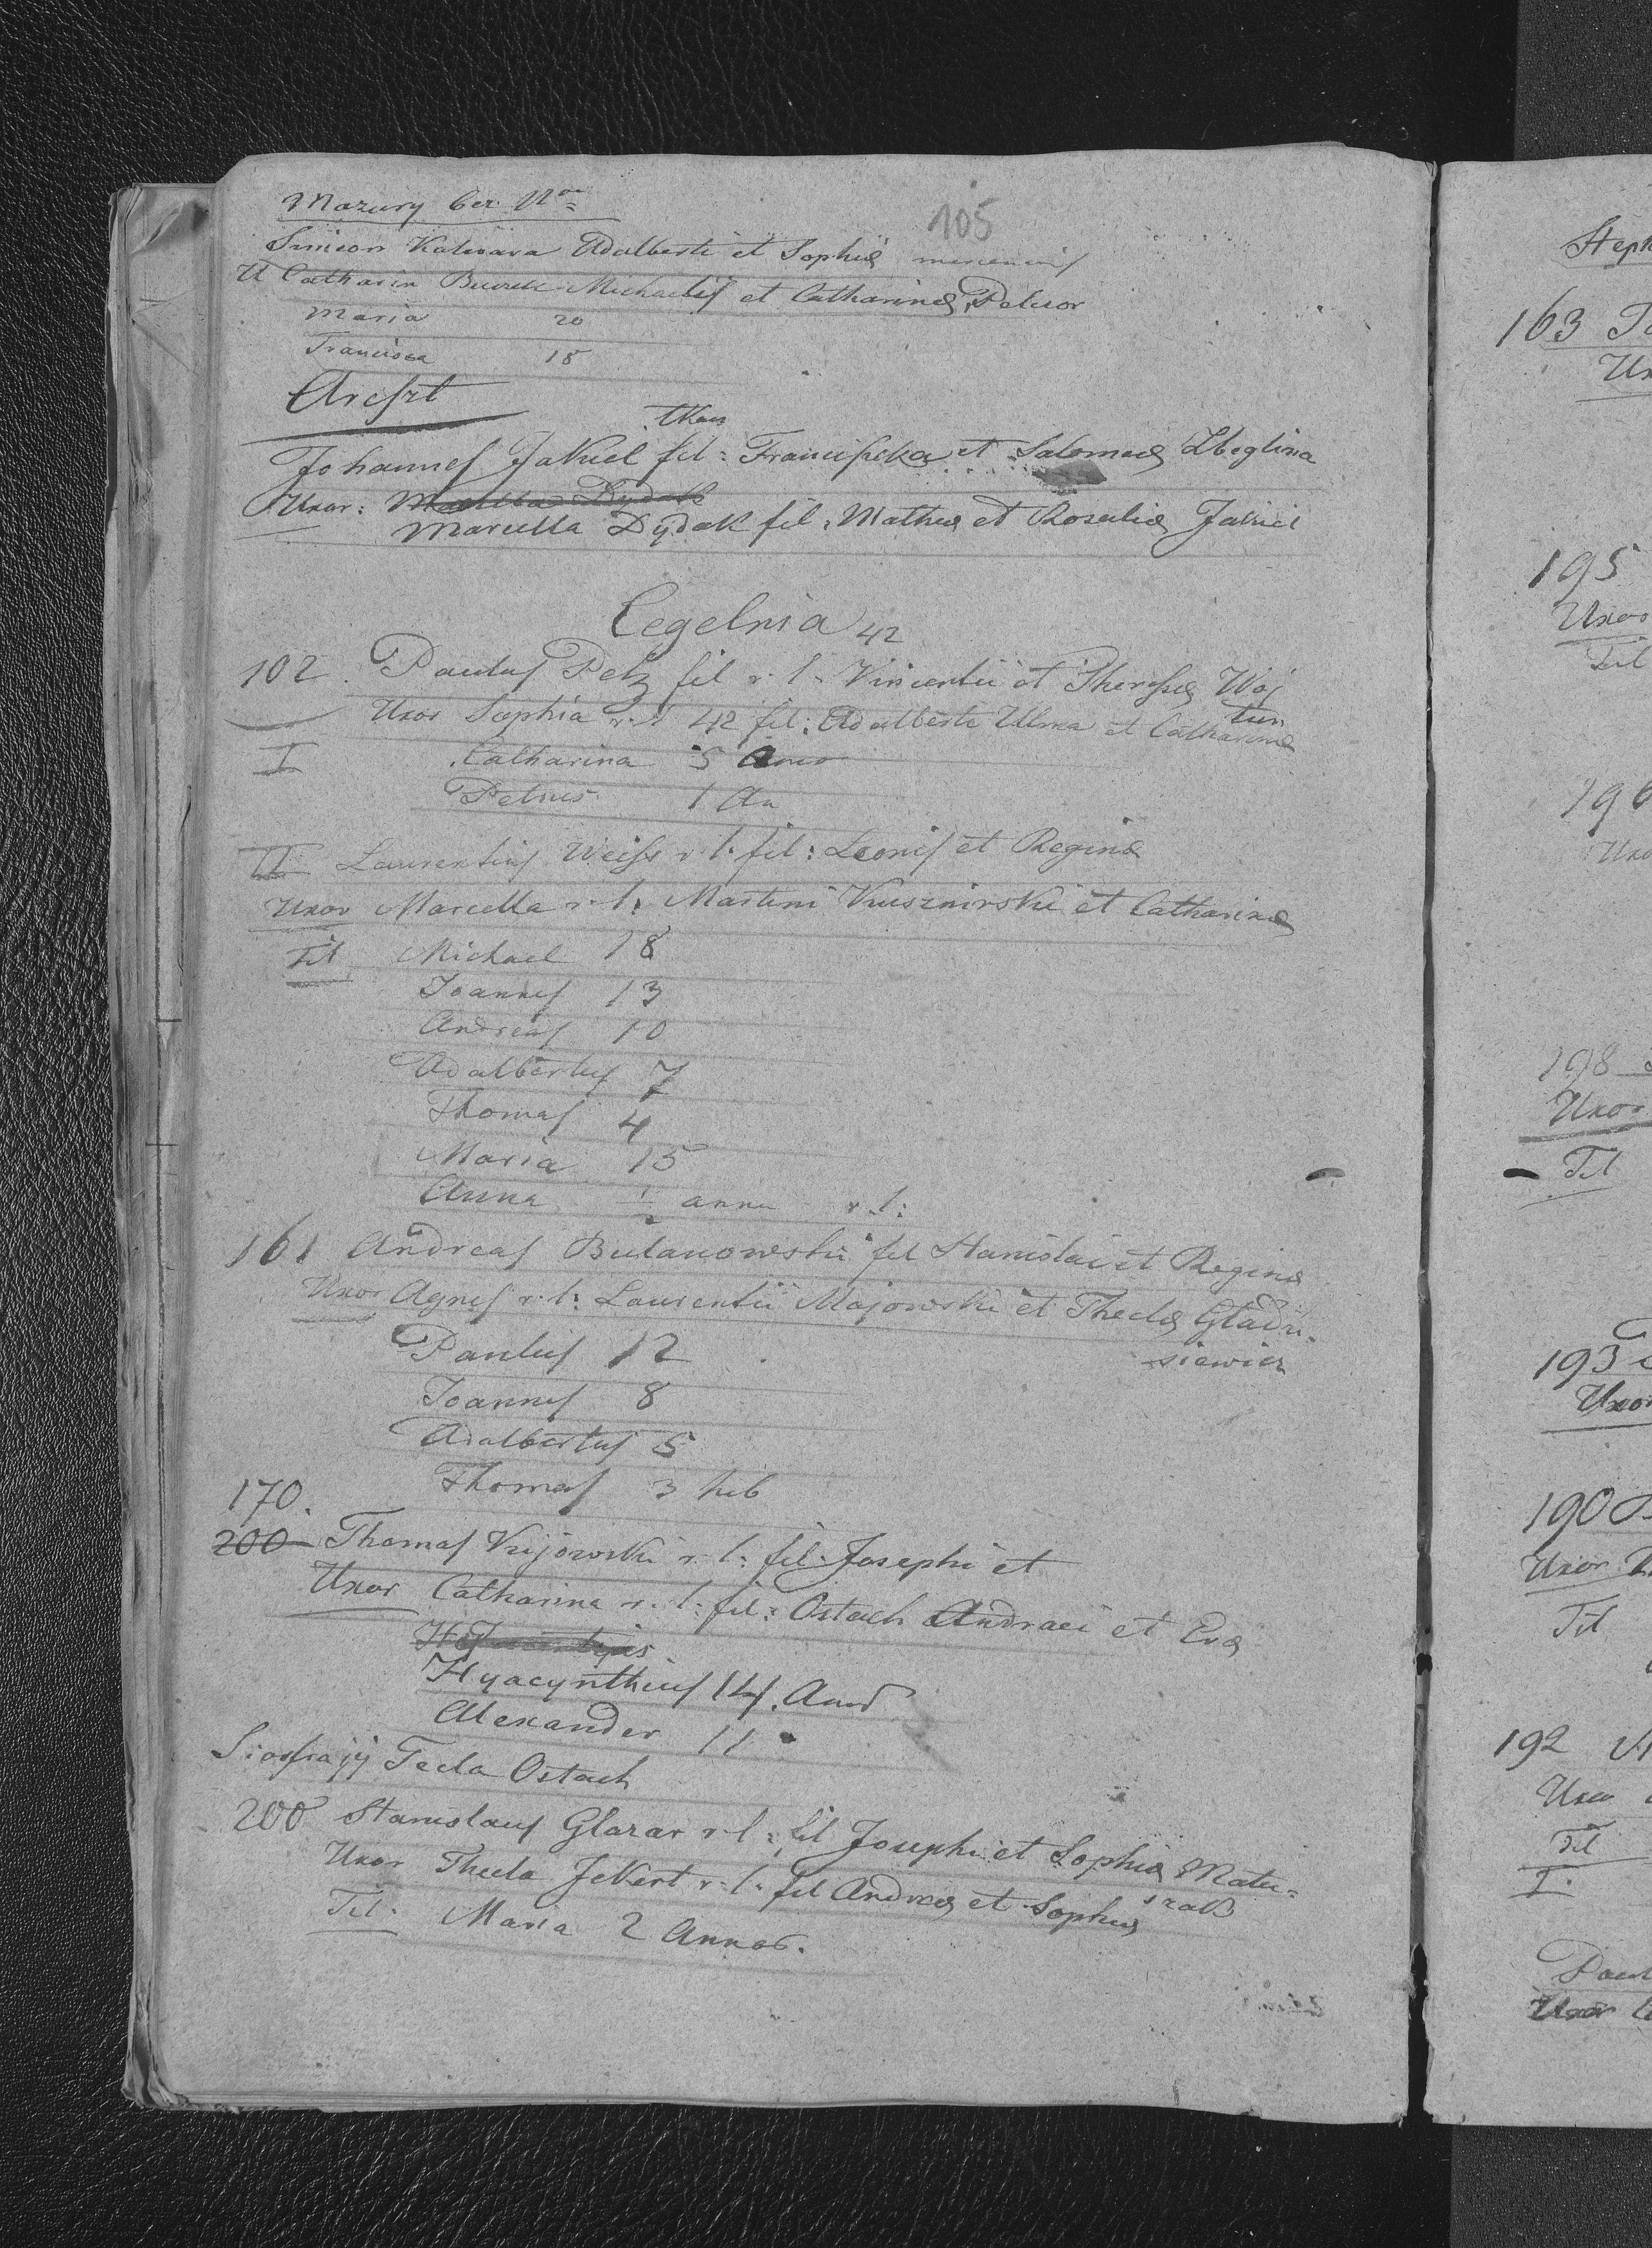 Mazury bez Nro
105
Simeon Kalwara Adalberti et Sophiæ
U Catharin Michaelis et Catharinæ Pelcior
Maria 20
Francisca 18
Areszt
tkacz
Johannes Jakiel fil: Franciseka et Salomeæ Zbeglina
Uxor:
Marcella Dydak fil: Matheæ et Rosaliæ Jakiel
Cegelnia 42
102. Paulus Pelz fil r. l. Vincentii et Theresiæ Woj
tun
Uxor Sophia r. l 42 fil: Adalberti Ulma et Catharinæ
I Catharina 5 Anno
Petrus 1 An
II Laurentius Weiss r. l. fil: Leonis et Reginæ
Uxor Marcella r. l: Martini Kusznirski et Catharinæ
Fil Michael 18
Joannes 13
Andreas 10
Adalbertus 7
Thomas 4
Maria 15
Anna ½ anni r. l:
161 Andreas Bulanowski fil Stanislai et Reginæ
Uxor Agnes r. l: Laurentii Majowski et Theclæ Gladi-
siewicz
Paulus 12
Joannes 8
Adalbertus 5
Thomas 3 heb
170.
200 Thomas Kijowski r. l: fil. Josephi et
Uxor Catharina r. l: fil: Ostach Andraei et Evæ
Hyacynthius 14. Anno
Alexander 11
Tecla Ostach
200 Stanislaus Glazar r. l: fil Josephi et Sophiæ Matu-
szak
Uxor Thecla Jekert r. l. fil Andreæ et Sophiæ
Fil. Maria 2 Annos.
Steph
163
Ux
195
Uxor
Fil
196
Uxo
198
Uxor
Fil
193
Uxor
190
Uxor
Fil
192
Uxor
Fil
I.
Paul
Uxor